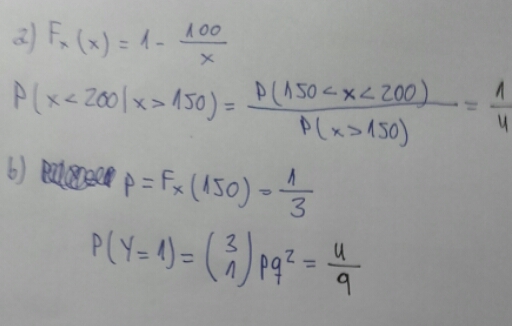 a) Fx(x) = 1 - 100/x
P(x<200|x>150) = P(150<x<200)/P(x>150) = 1/4
b) p = Fx(150) = 1/3
P(Y=1) = (3 1) pq² = 4/9